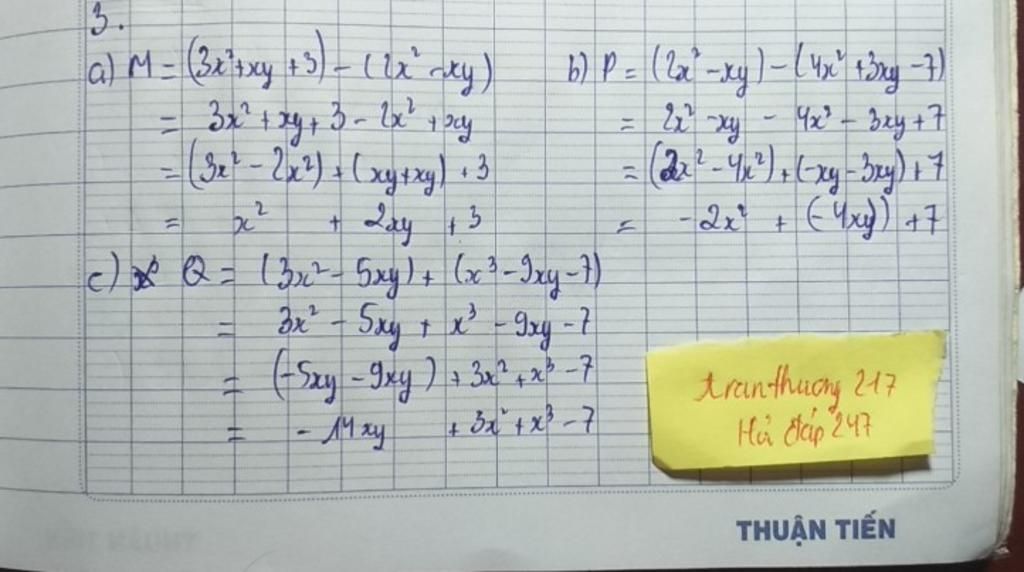 3.
a) M = (3x²+xy+3) - (2x² - xy)
= 3x² + xy + 3 - 2x² + xy
= (3x² - 2x²) + (xy+xy) + 3
= x² + 2xy + 3
b) P = (2x² - xy) - (4x² + 3xy - 7)
= 2x² - xy - 4x² - 3xy + 7
= (2x² - 4x²) + (-xy - 3xy) + 7
= - 2x² + (-4xy) + 7
c) Q = (3x² - 5xy) + (x³ - 9xy - 7)
= 3x² - 5xy + x³ - 9xy - 7
= (-5xy - 9xy) + 3x² + x³ - 7
= - 14xy + 3x² + x³ - 7
tranthuong 217
Hỏi đáp 247
THUẬN TIẾN